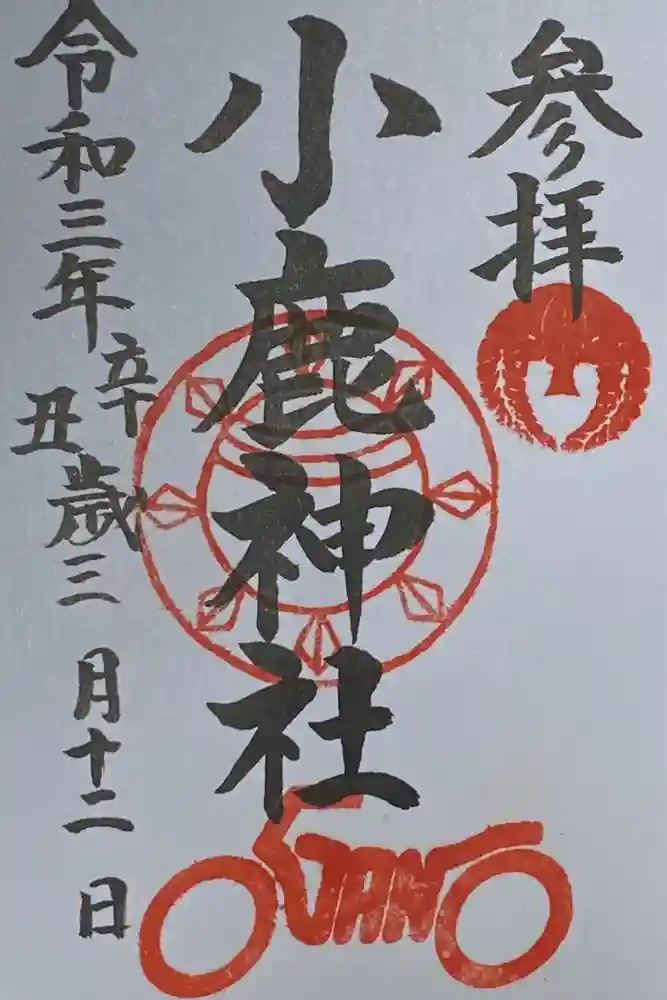 参拝
小鹿神社
令和三年辛丑歳三月十二日